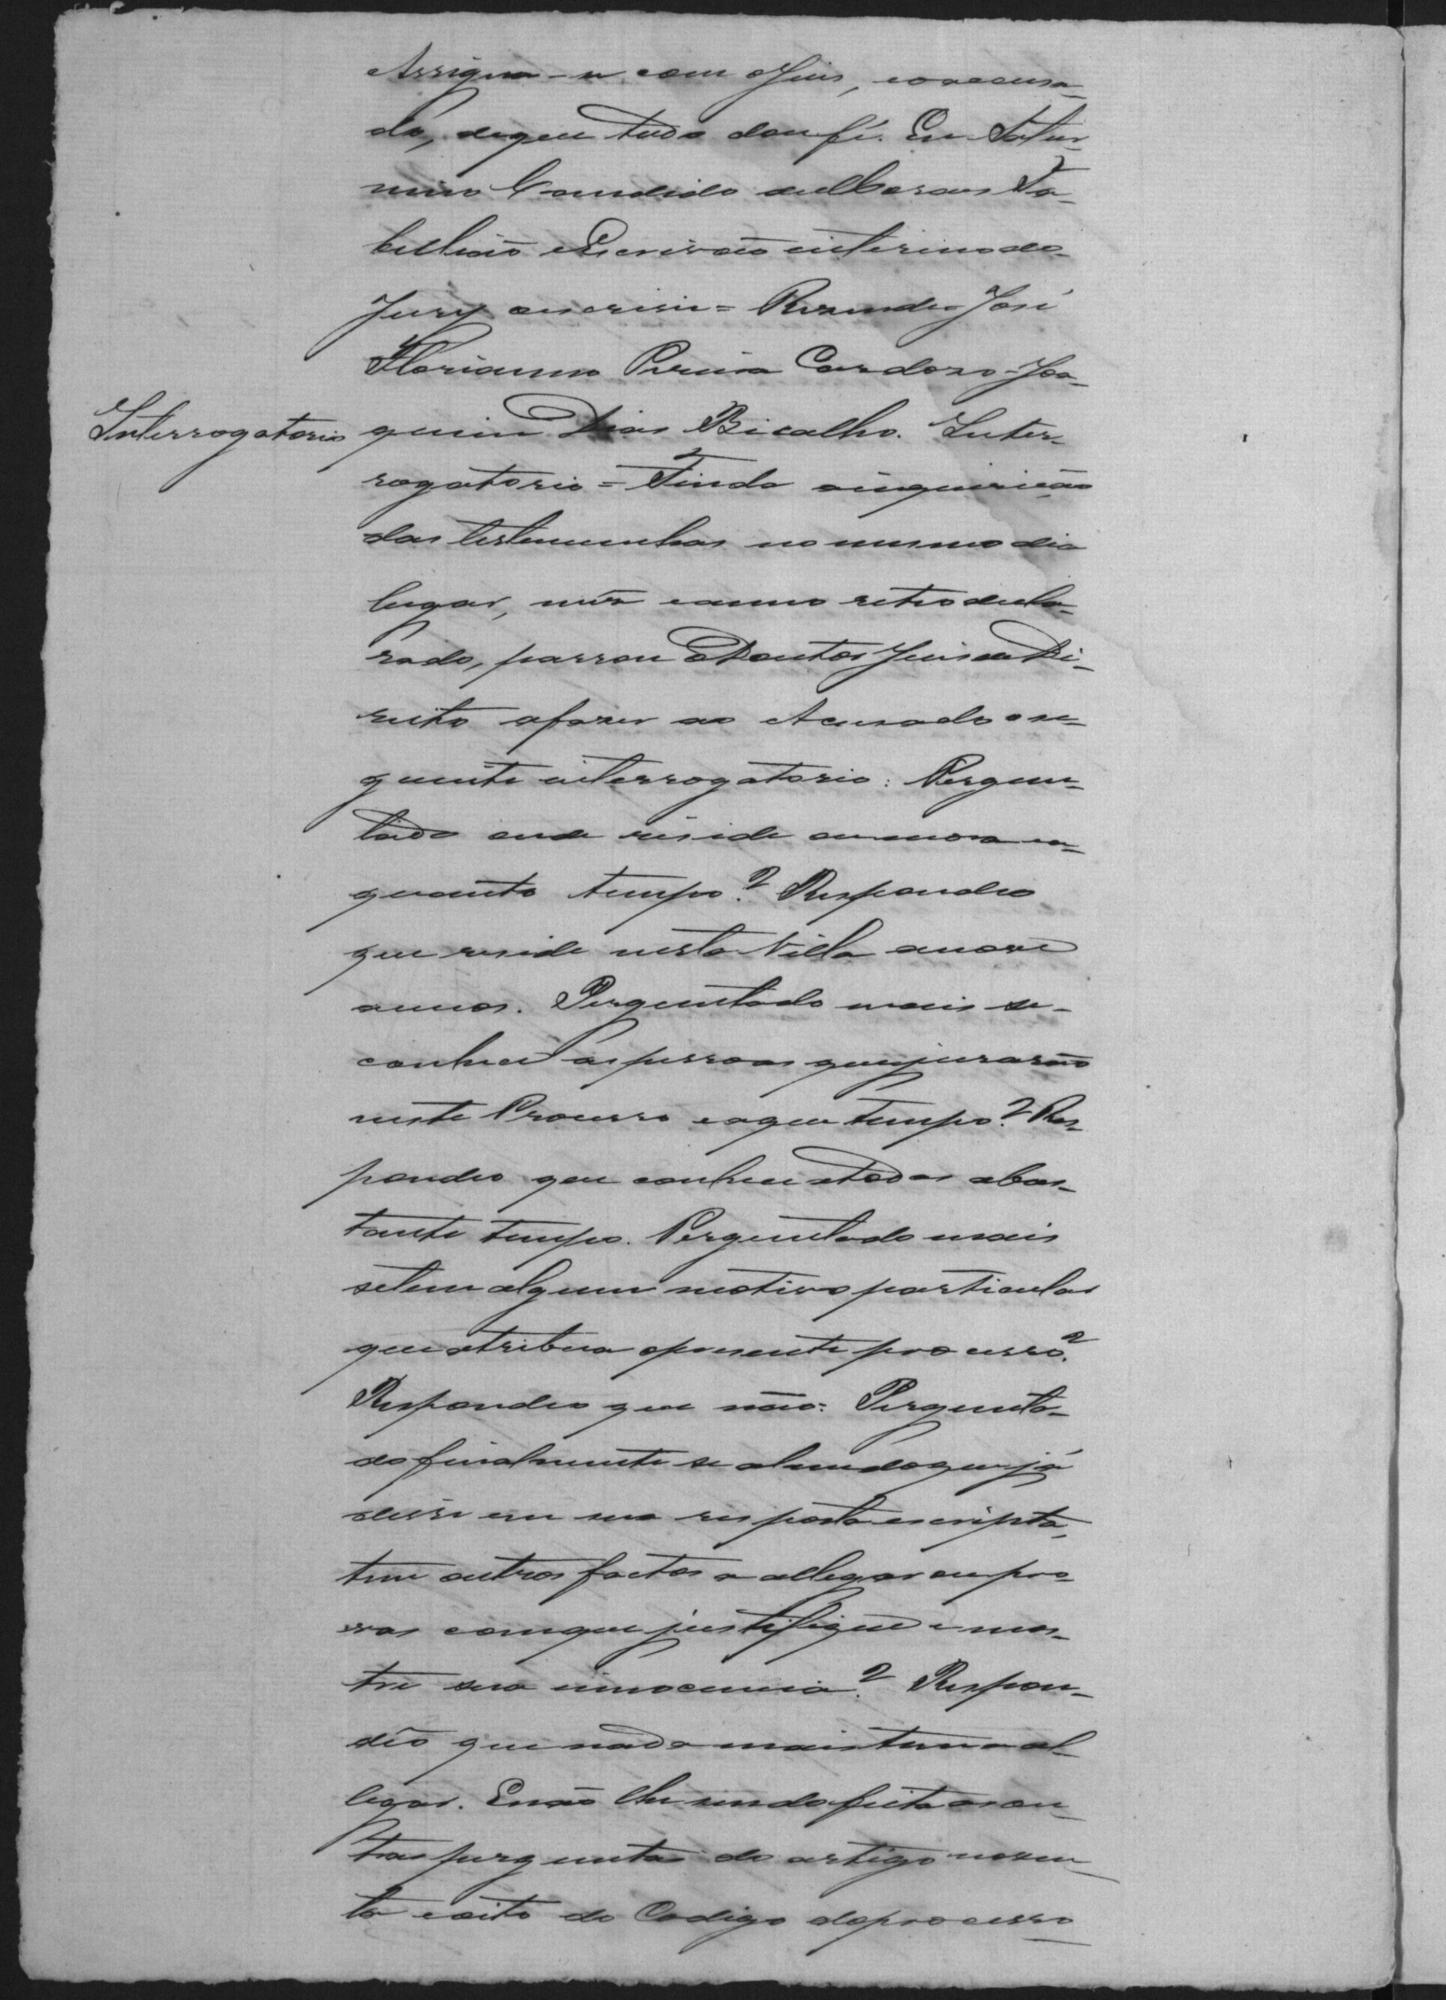 Assigna-se com o Juis, eo accusa-
do, de que tudo dou fé. Eu Satur-
nino Candido Ta-
bellião e Escrivão interino do
Jury escrivi = Rezende = José
Florianno Pereira Cardozo - Joa-
Interrogatorio
quim Dias Bicalho. Inter-
rogatorio = Finda a inquirição
das testemunhas no mesmo dia
lugar, mes e anno retro decla-
rado, passou o Doutor Juis de Di-
reito a fazer ao Acusado o se-
guinte interrogatorio: Pergun-
tado onde reside ou mora e a
quanto tempo? Respondeo
que reside nesta Villa a nove
annos. Perguntado mais se
conhece as pessoas que jurarão
neste Processo e a que tempo? Res-
pondeo que conhece a todos a bas-
tante tempo. Perguntado mais
se tem algum motivo particular
que atribua o presente processo?
Respondeo que não: Pergunta-
do finalmente se alem do que já
disse em sua resposta escripta,
tem outros factos a allegar ou pro-
vas com que justifique e mos-
tre sua innocencia? Respon-
dêo que nada mais tem a al-
legar. E não lhe sendo feita as ou-
tras perguntas do artigo noven-
ta e oito do Codigo do processo